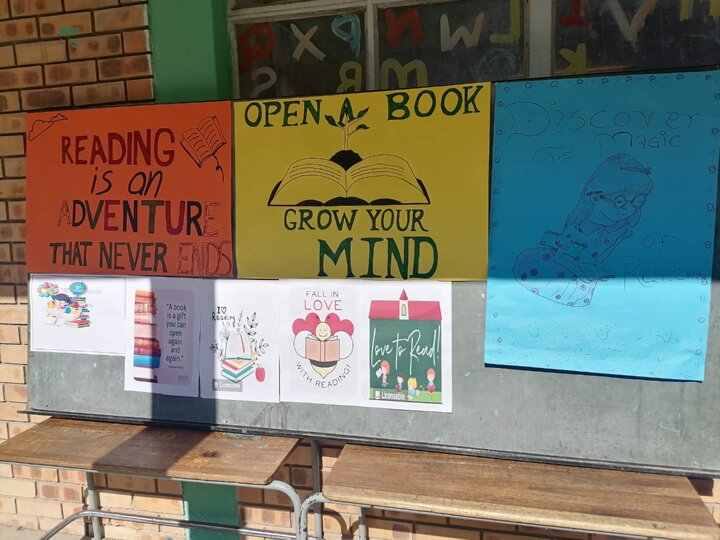 READING
is an
ADVENTURE
THAT NEVER ENDS
OPEN A BOOK
GROW YOUR
MIND
Discover
THE magic
OF
"A book
is a gift
you can
open
again
and
again."
I
Reading
Licensable
FALL IN
LOVE
WITH READING!
Love to Read!
Licensable